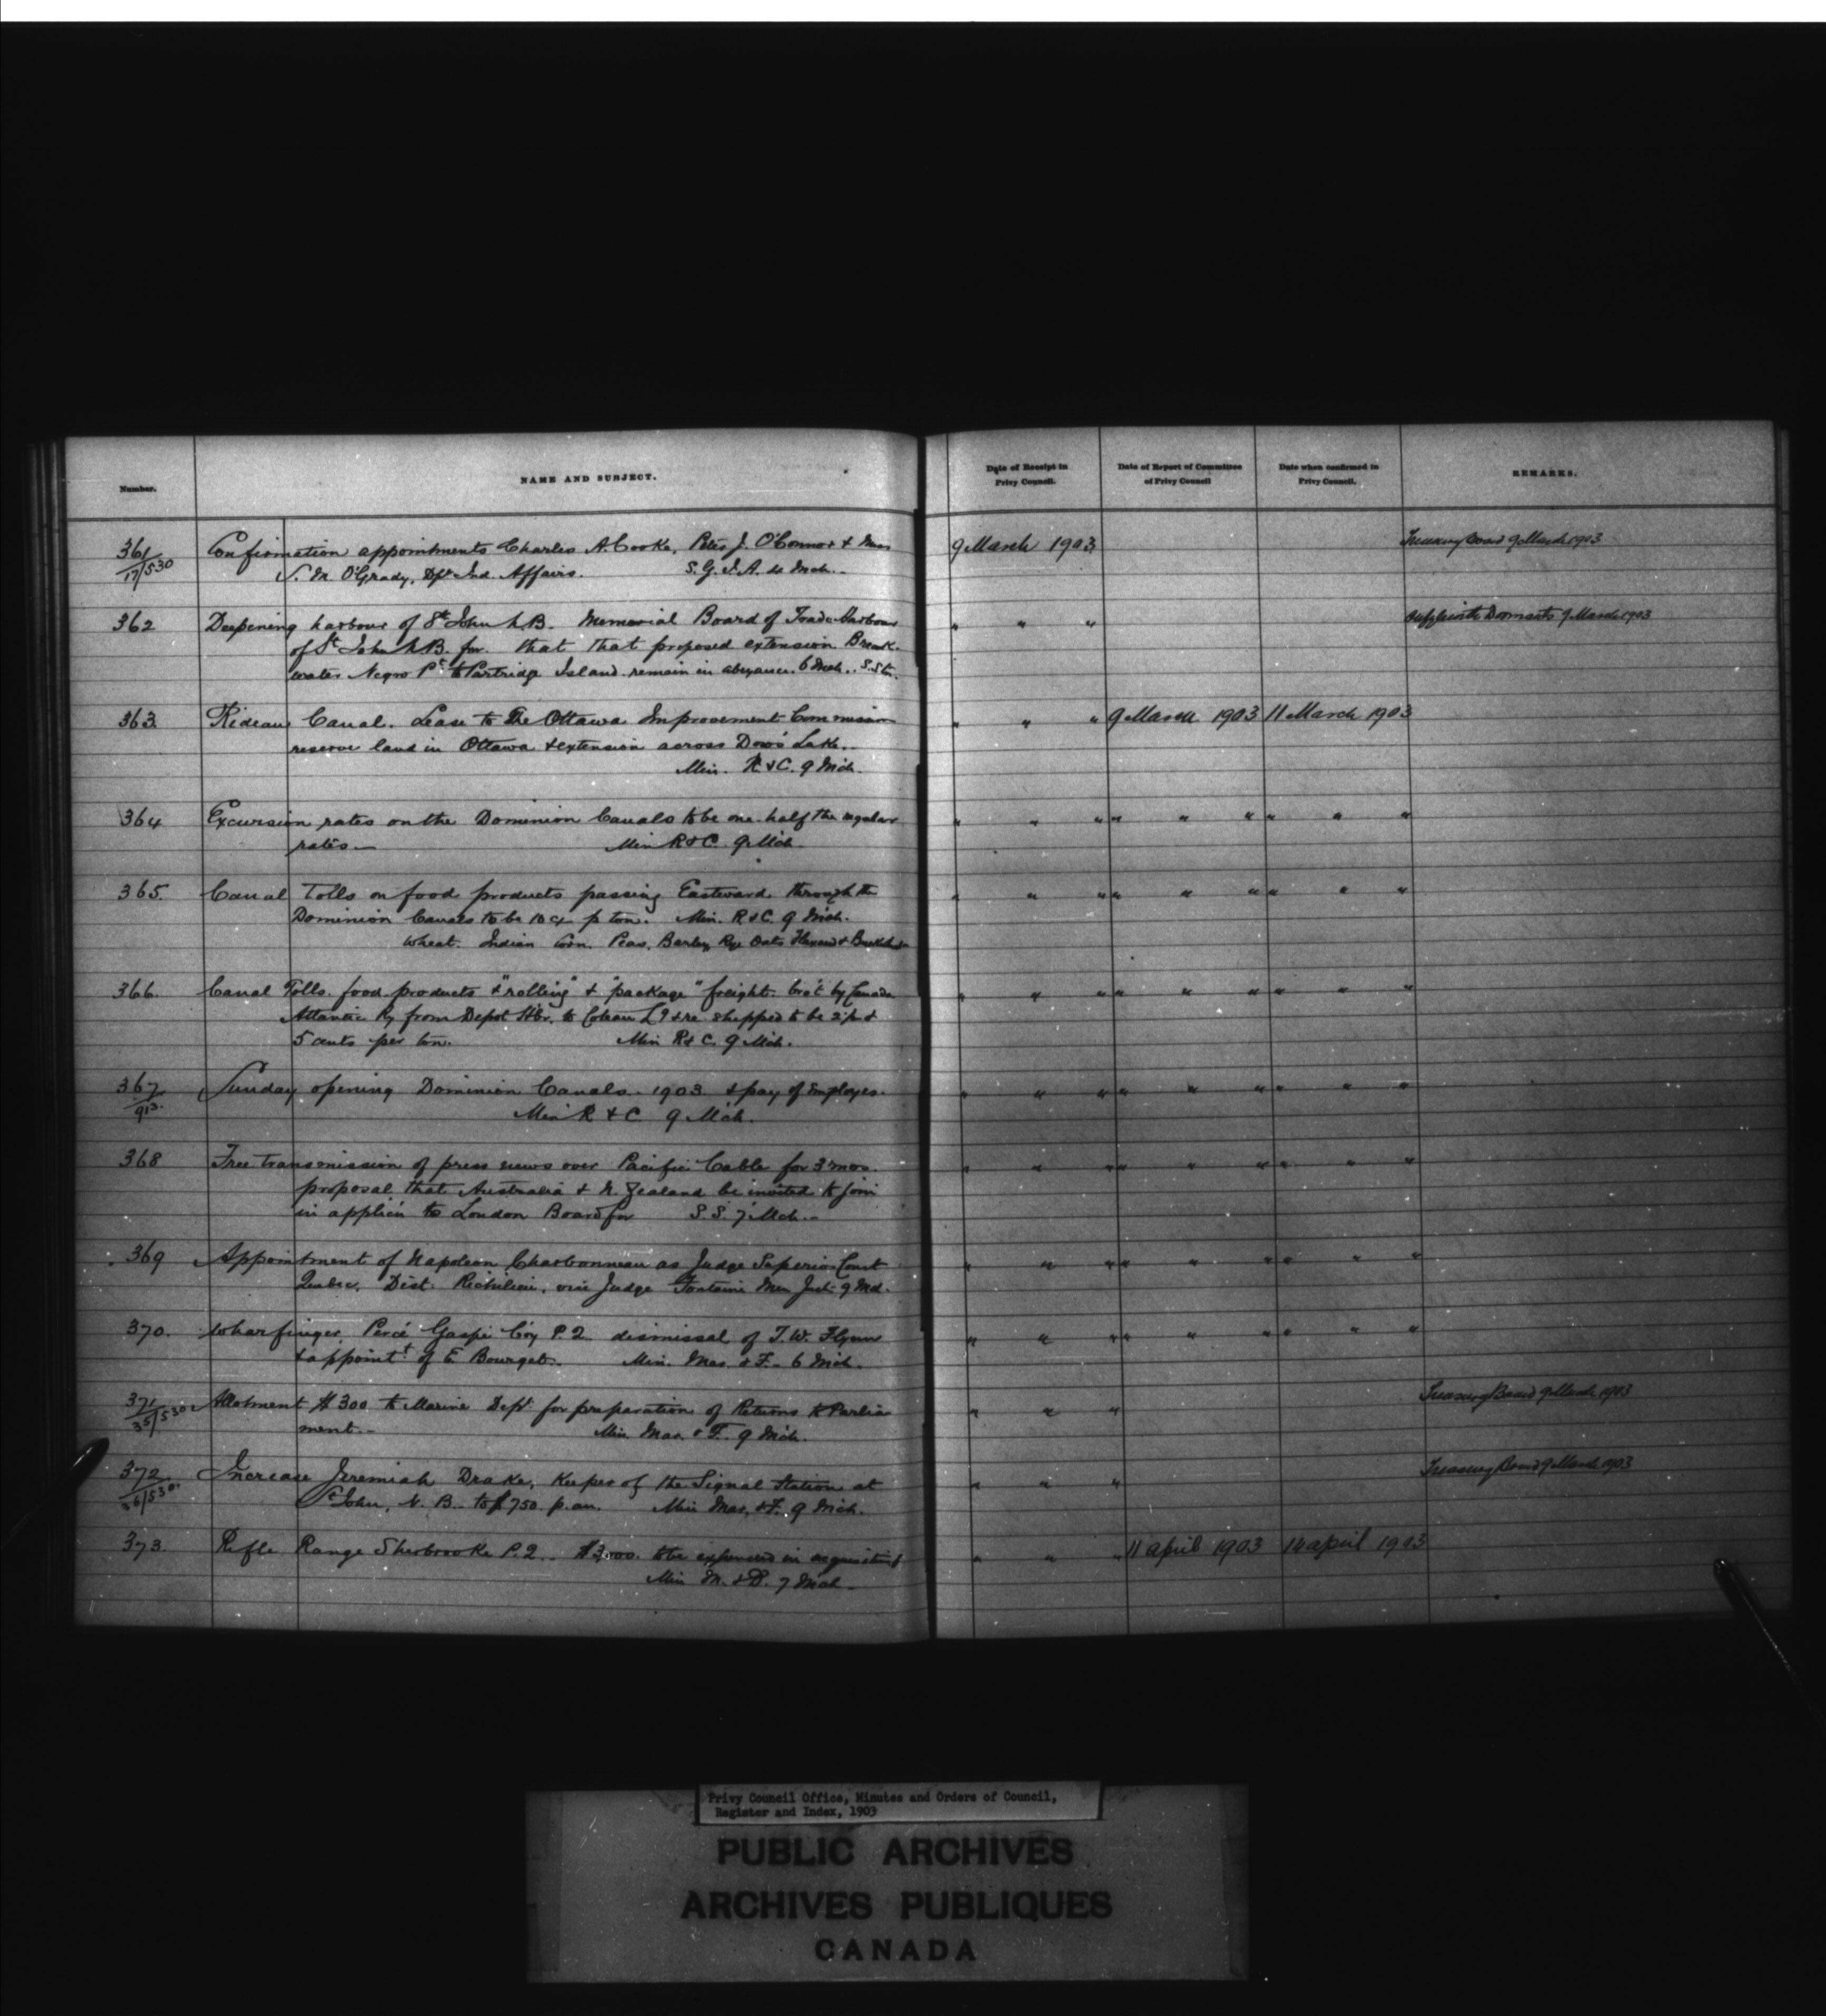 Number.
NAME AND SUBJECT.
Date of Receipt in Privy Council.
Date of Report of Committee of Privy Council
Date when confirmed in Privy Council.
REMARKS.
361 Confirmation appointments Charles A. Cooke, Peter J. O'Connor & Miss 9 March 1903 Treasury Board 9 March 1903
17/530 S. M. O'Grady, Dpt Ind. Affairs. S.G.I.A. 4 Mch.
362 Deepening harbour of St John N.B. Memorial Board of Trade Harbour " " " 9 March 1903
of St John N.B. for that that proposed extension Break-
water Negro Pt to Partridge Island remain in abeyance. 6 Mch.
363 Rideau Canal. Lease to The Ottawa Improvement Commission " " " 9 March 1903 11 March 1903
reserve land in Ottawa & extension across Dow's Lake.
Min. R & C. 9 Mch.
364 Excursion rates on the Dominion Canals to be one-half the regular " " " " " " " " "
rates.— Min R & C 9 Mch.
365. Canal Tolls on food products passing Eastward through the " " " " " " " " "
Dominion Canals to be 10 cts p ton. Min. R & C. 9 Mch.
Wheat. Indian Corn. Peas, Barley, Rye Oats Flaxseed &
366. Canal Tolls. food products & "rolling" & "package" freight. bro't by Canada " " " " " " " " "
Atlantic Ry from Depot Hbr. to Coteau & re shipped to be 2 &
5 cents per ton. Min R & C. 9 Mch.
367 Sunday opening Dominion Canals. 1903 & pay of Employes. " " " " " " " " "
Min R & C 9 Mch.
368 Free transmission of press news over Pacific Cable for 3 mos. " " " " " " " " "
proposal that Australia & N. Zealand be invited to join
in applic'n to London Board for S.S. 7 Mch.—
369 Appointment of Napoleon Charbonneau as Judge Superior Court " " " " " " " " "
Quebec. Dist. Richelieu. vice Judge Fontaine Min Just. 9 Mch.
370. Wharfinger. Percé Gaspé Coy P.Q. dismissal of T.W. Flynn " " " " " " " " "
& appointt of E. Bourget. Min. Mar. & F. 6 Mch.
371 Allotment $300 to Marine Dept for preparation of Returns to Parlia " " " Treasury Board 9 March 1903
35/530 ment.— Min. Mar. & F. 9 Mch.
372 Increase Jeremiah Drake, Keeper of the Signal Station at " " " Treasury Board 9 March 1903
36/530 St John, N.B. to $750. p. an. Min Mar, & F. 9 Mch.
373. Rifle Range Sherbrooke P.Q. $3,000. to be expended in acquisition of " " " 11 April 1903 14 April 1903
Min M. & D. 7 Mch.
Privy Council Office, Minutes and Orders of Council,
Register and Index, 1903
PUBLIC ARCHIVES
ARCHIVES PUBLIQUES
CANADA